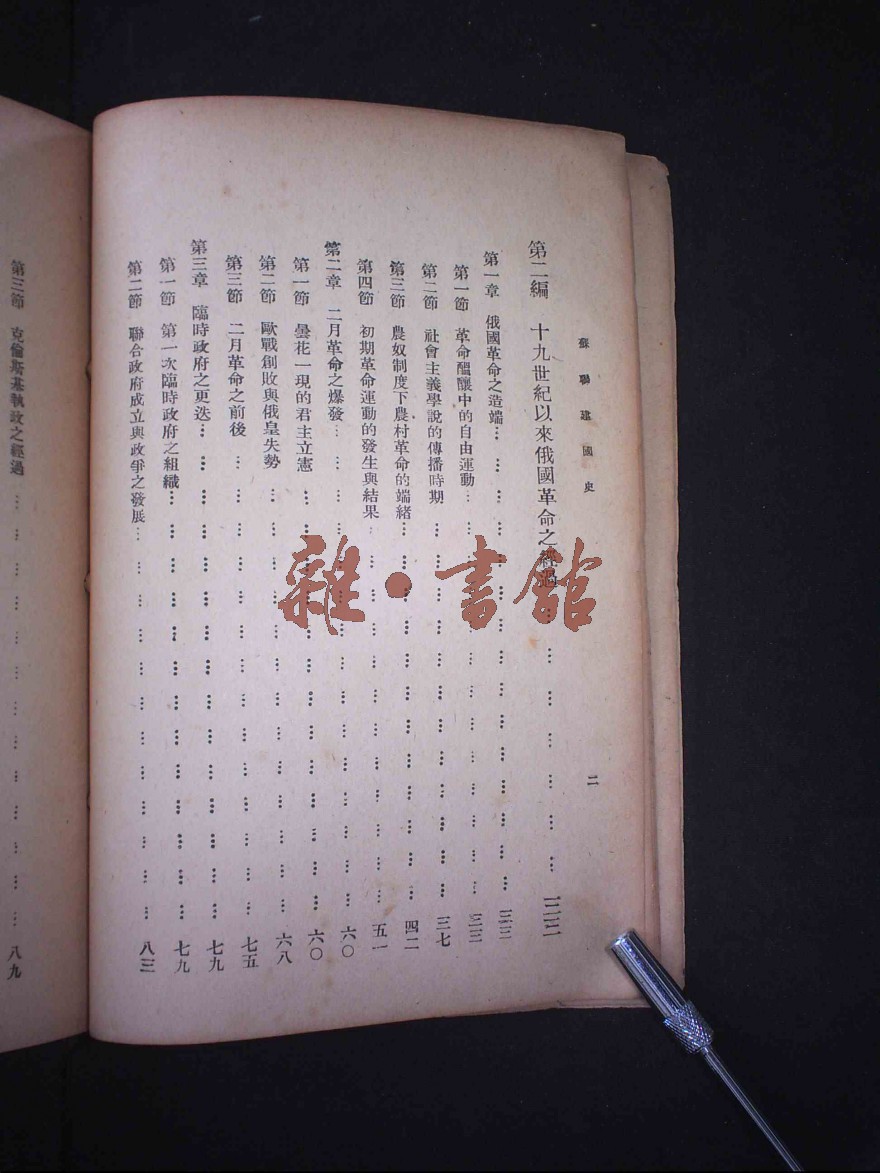 蘇聯建國史
二
第二編 十九世紀以來俄國革命之經過……
第一章 俄國革命之造端……三三
第一節 革命醞釀中的自由運動……三三
第二節 社會主義學說的傳播時期……三七
第三節 農奴制度下農村革命的端緒……四二
第四節 初期革命運動的發生與結果……五一
第二章 二月革命之爆發……六〇
第一節 曇花一現的君主立憲……六〇
第二節 歐戰創敗與俄皇失勢……六八
第三節 二月革命之前後……七五
第三章 臨時政府之更迭……七九
第一節 第一次臨時政府之組織……七九
第二節 聯合政府成立與政爭之發展……八三
第三節 克倫斯基執政之經過……八九
雜·書館